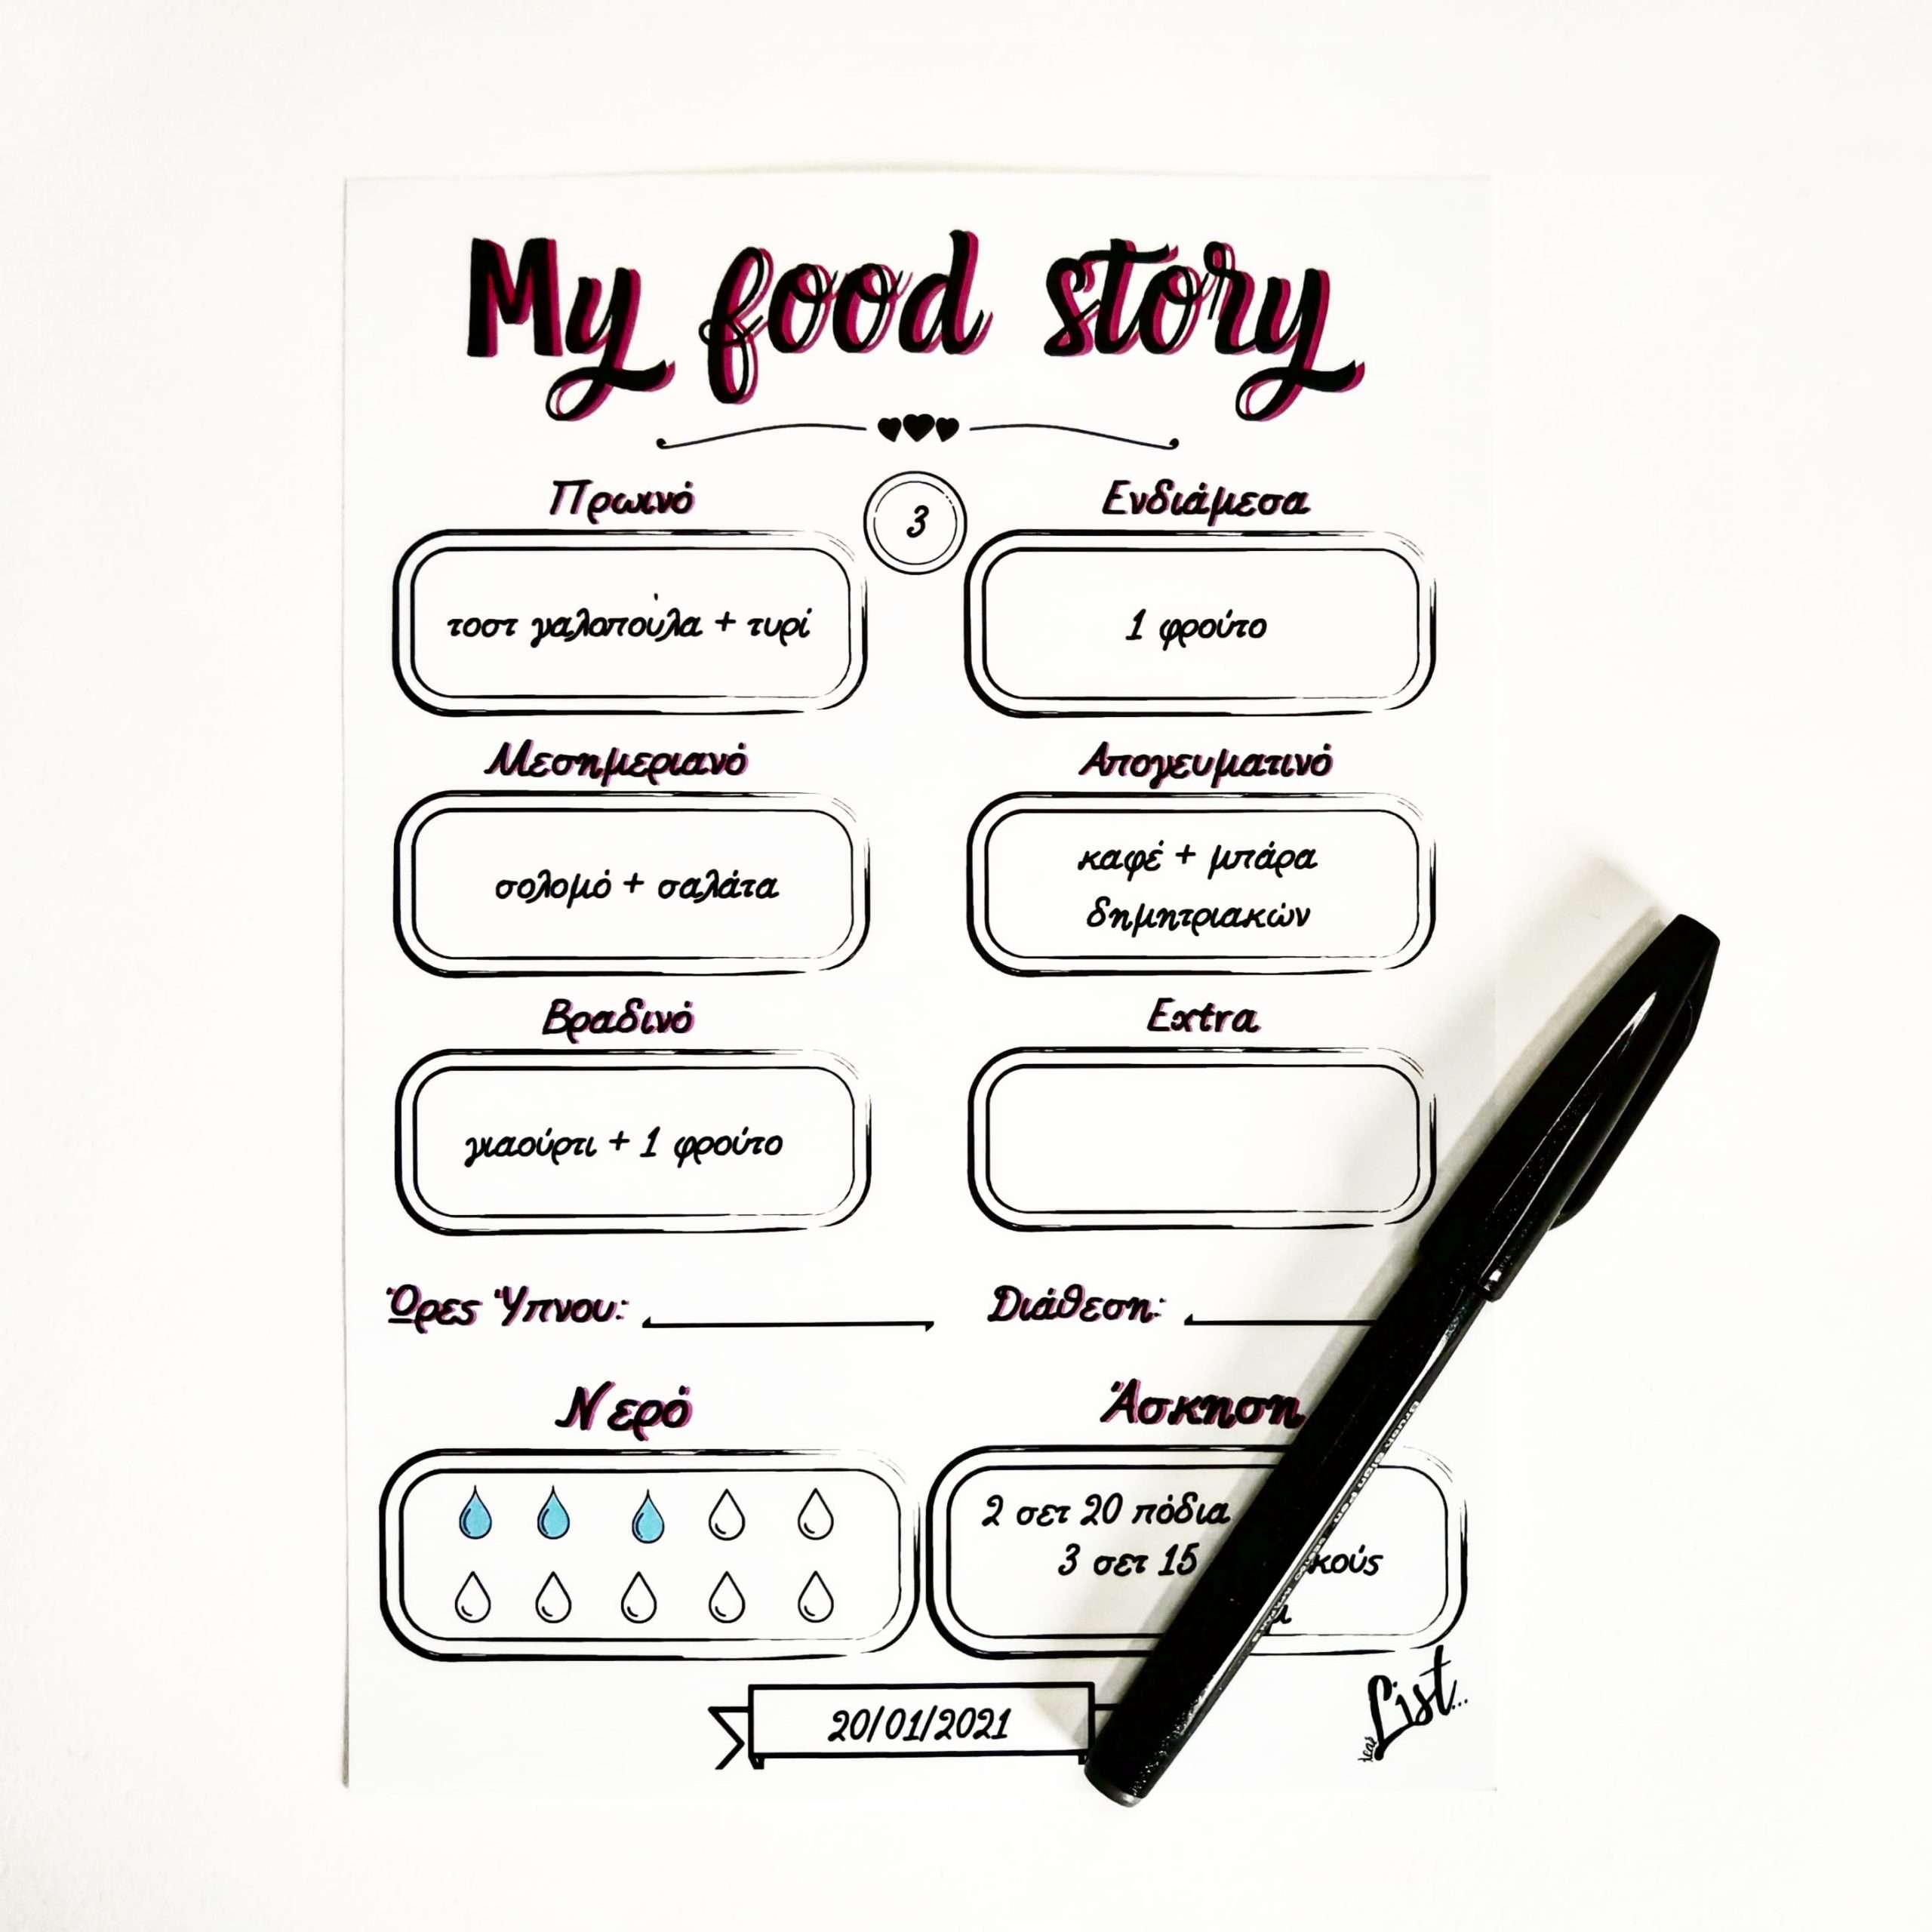 My food story
3
Πρωινό
τοστ γαλοπούλα + τυρί
Ενδιάμεσα
1 φρούτο
Μεσημεριανό
σολομό + σαλάτα
Απογευματινό
καφέ + μπάρα
δημητριακών
Βραδινό
γιαούρτι + 1 φρούτο
Extra
Ώρες Ύπνου:
Διάθεση:
Νερό
Άσκηση
2 σετ 20 πόδια
3 σετ 15
20/01/2021
List...